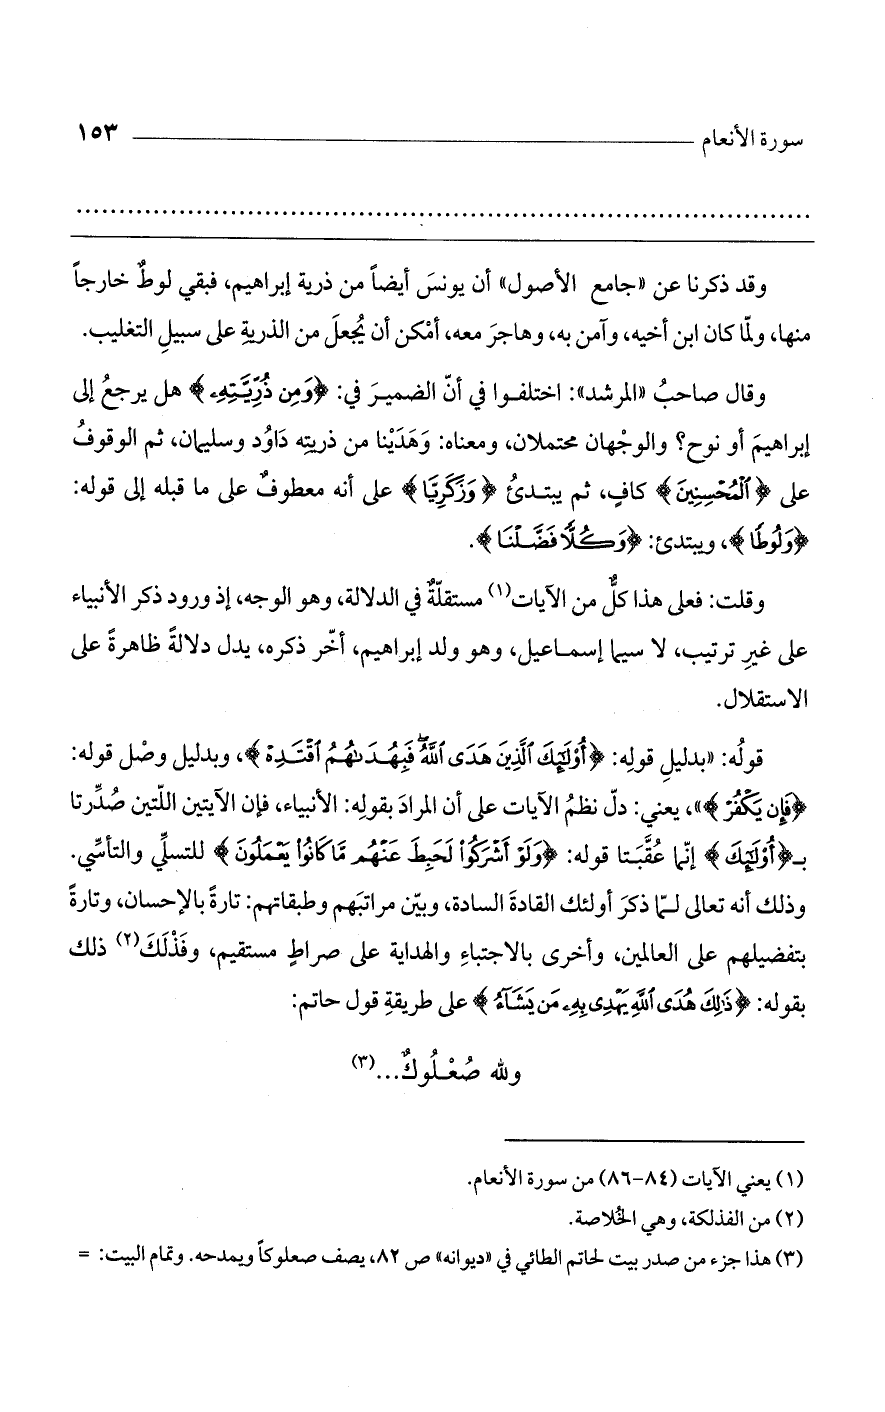 سورة الأنعام ١٥٣
وقد ذكرنا عن «جامع الأصول» أن يونسَ أيضاً من ذرية إبراهيم، فبقي لوطٌ خارجاً
منها، ولمّا كان ابن أخيه، وآمن به، وهاجرَ معه، أمْكن أن يُجعلَ من الذريةِ على سبيلِ التغليب.
وقال صاحبُ «المرشد»: اختلفوا في أنّ الضميرَ في: ﴿وَمِن ذُرِّيَّتِهِۦ﴾ هل يرجعُ إلى
إبراهيمَ أو نوح؟ والوجْهان محتملان، ومعناه: وَهَدَيْنا من ذريتِه دَاوُد وسليمان، ثم الوقوفُ
على ﴿ٱلْمُحْسِنِينَ﴾ كافٍ، ثم يبتدئُ ﴿وَزَكَرِيَّا﴾ على أنه معطوفٌ على ما قبله إلى قوله:
﴿وَلُوطًا﴾، ويبتدئ: ﴿وَكُلًّا فَضَّلْنَا﴾.
وقلت: فعلى هذا كلٌّ من الآيات(١) مستقلّةٌ في الدلالة، وهو الوجه، إذ ورود ذكر الأنبياء
على غيرِ ترتيب، لا سيما إسماعيل، وهو ولد إبراهيم، أخّر ذكره، يدل دلالةً ظاهرةً على
الاستقلال.
قولُه: «بدليلِ قولِه: ﴿أُوْلَٰٓئِكَ ٱلَّذِينَ هَدَى ٱللَّهُ ۖ فَبِهُدَىٰهُمُ ٱقْتَدِهْ﴾، وبدليل وصْل قوله:
﴿فَإِن يَكْفُرْ﴾»، يعني: دلّ نظمُ الآيات على أن المرادَ بقولِه: الأنبياء، فإن الآيتين اللّتين صُدِّرتا
بـ﴿أُوْلَٰٓئِكَ﴾ إنّما عُقَّبَتا قوله: ﴿وَلَوْ أَشْرَكُوا۟ لَحَبِطَ عَنْهُم مَّا كَانُوا۟ يَعْمَلُونَ﴾ للتسلِّي والتأسِّي.
وذلك أنه تعالى لـمّا ذكرَ أولئك القادةَ السادة، وبيّن مراتبَهم وطبقاتهم: تارةً بالإحسان، وتارةً
بتفضيلهم على العالمين، وأخرى بالاجتباءِ والهداية على صراطٍ مستقيم، وفَذْلَكَ(٢) ذلك
بقوله: ﴿ذَٰلِكَ هُدَى ٱللَّهِ يَهْدِى بِهِۦ مَن يَشَآءُ﴾ على طريقةِ قول حاتم:
ولله صُعْلُوكٌ...(٣)
(١) يعني الآيات (٨٤-٨٦) من سورة الأنعام.
(٢) من الفذلكة، وهي الخُلاصة.
(٣) هذا جزء من صدر بيت لحاتم الطائي في «ديوانه» ص ٨٢، يصف صعلوكاً ويمدحه. وتمام البيت: =